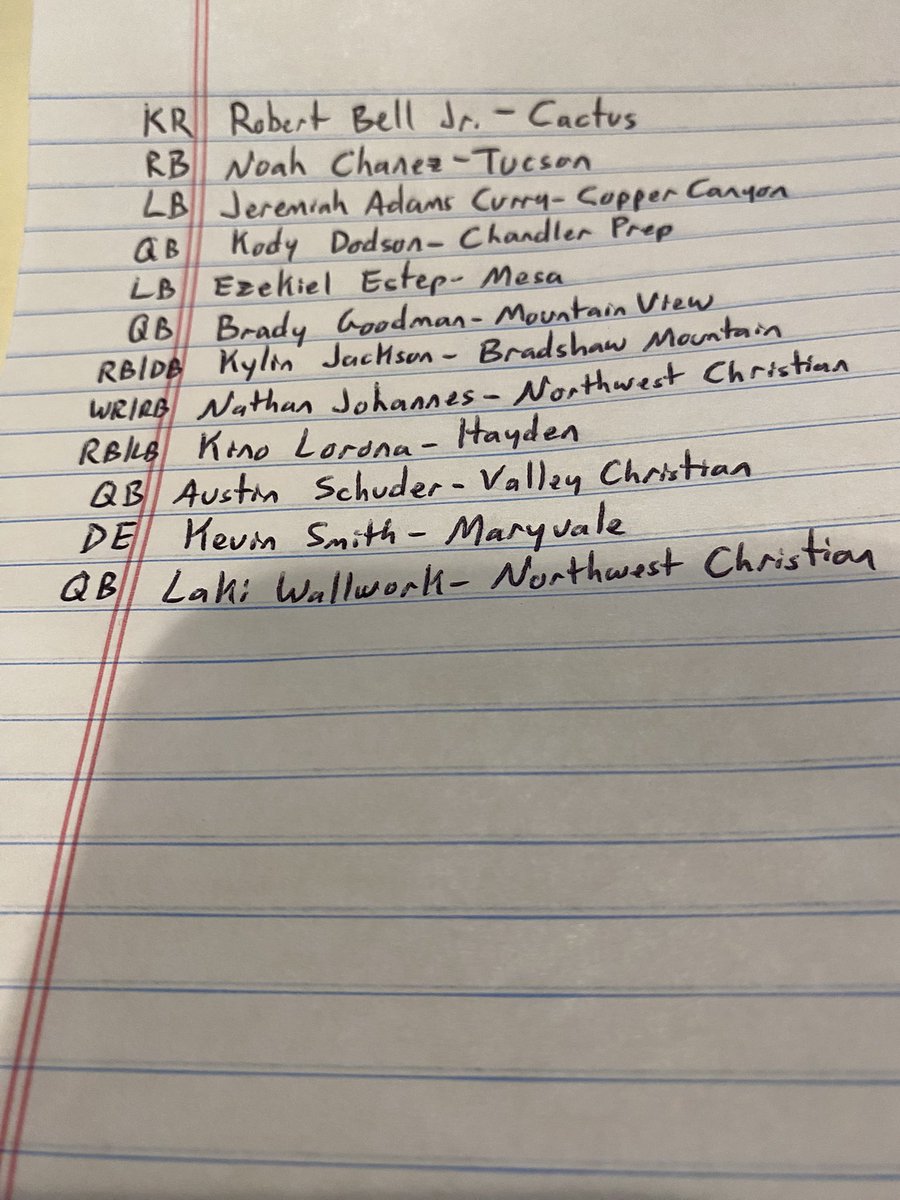 KR Robert Bell Jr. - Cactus
RB Noah Chanez - Tucson
LB Jeremiah Adams Curry - Copper Canyon
QB Kody Dodson - Chandler Prep
LB Ezekiel Estep - Mesa
QB Brady Goodman - Mountain View
RB/DB Kylin Jackson - Bradshaw Mountain
WR/RB Nathan Johannes - Northwest Christian
RB/LB Kino Lorona - Hayden
QB Austin Schuder - Valley Christian
DE Kevin Smith - Maryvale
QB Laki Wallwork - Northwest Christian